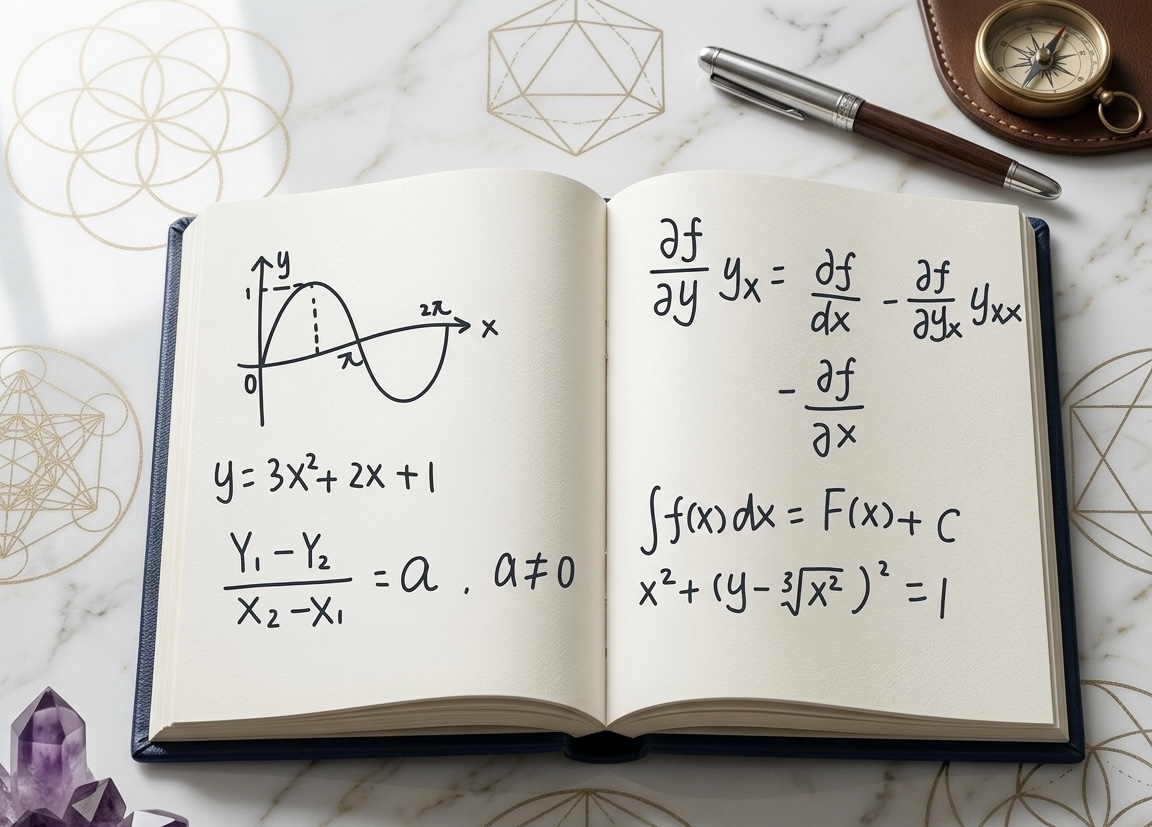 y
1
2π
x
π
0
y = 3x² + 2x + 1
(Y₁ − Y₂)/(X₂ − X₁) = a . a ≠ 0
∂f/∂y yₓ = ∂f/dx − ∂f/∂yₓ yₓₓ
− ∂f/∂x
∫f(x)dx = F(x) + C
x² + (y − ∛x²)² = 1